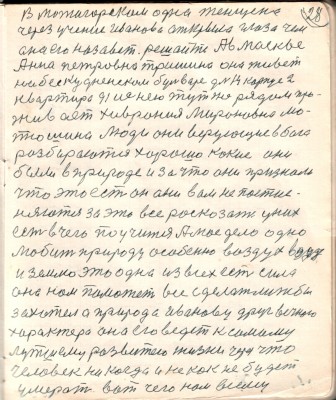 28
В можгарском одна женщена
через учение Иванова открыла глаза чем
она его назавет. решайте А в Маскве
Анна петровна тришина она живет
на бескудненском бульваре д м 14 карпус 2
квартира 91 и нею тут но рядом про-
живает Хиврония Мироновна мо-
тошина Люди они верующие в бога
разбираются харашо какие они
были в природе и за что они признали
что это ест он они вам не постис-
няются за это все росказат у них
ест в чего поучится А мое дело одно
любит природу особенно воздух воду
и землю это одна из всех ест сила
она нам поможет все сделат лиж бы
захотел а природа Иванову друг вечного
характера она его ведет к самаму
лутшему развитею жизни чуч что
человек никогда и не как не будет
умерат. вот чего нам всему